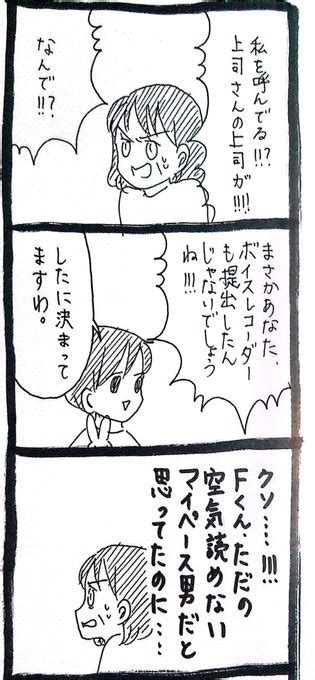 私を呼んでる!!?
上司さんの上司が!!!!
なんで!!?
まさかあなた、
ボイスレコーダー
も提出したん
じゃないでしょう
ね!!!
したに決まって
ますわ。
クソ……!!!
Fくん、ただの
空気読めない
マイペース男だと
思ってたのに…